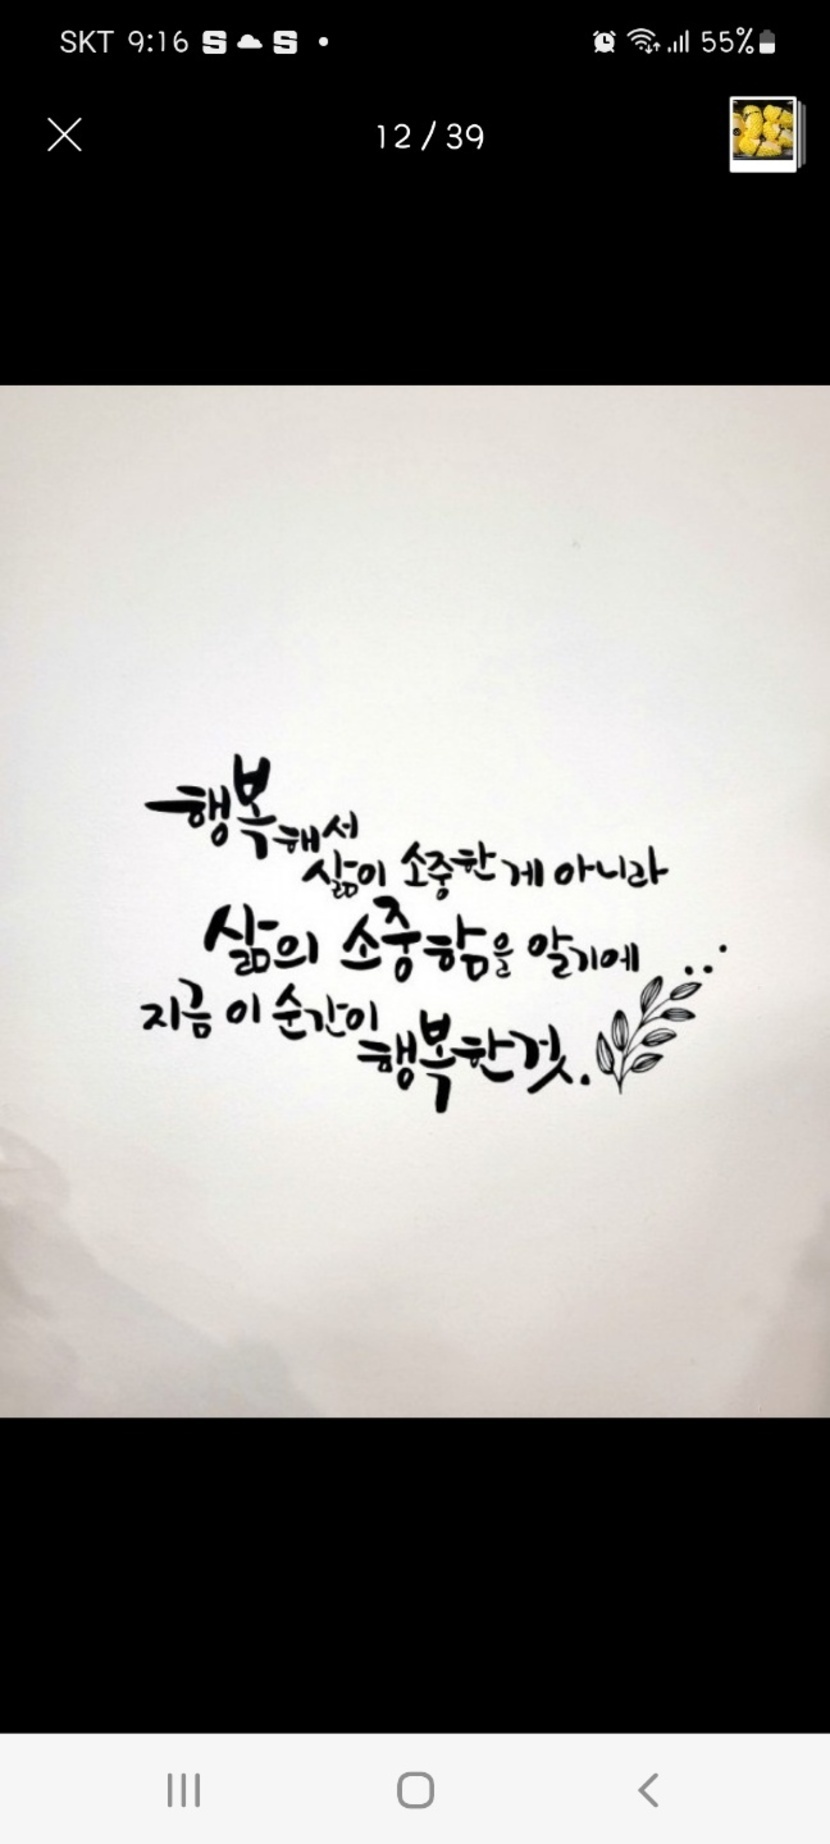 SKT 9:16
55%
12 / 39
행복해서
삶이 소중한 게 아니라
삶의 소중함을 알기에
지금 이 순간이
행복한것.